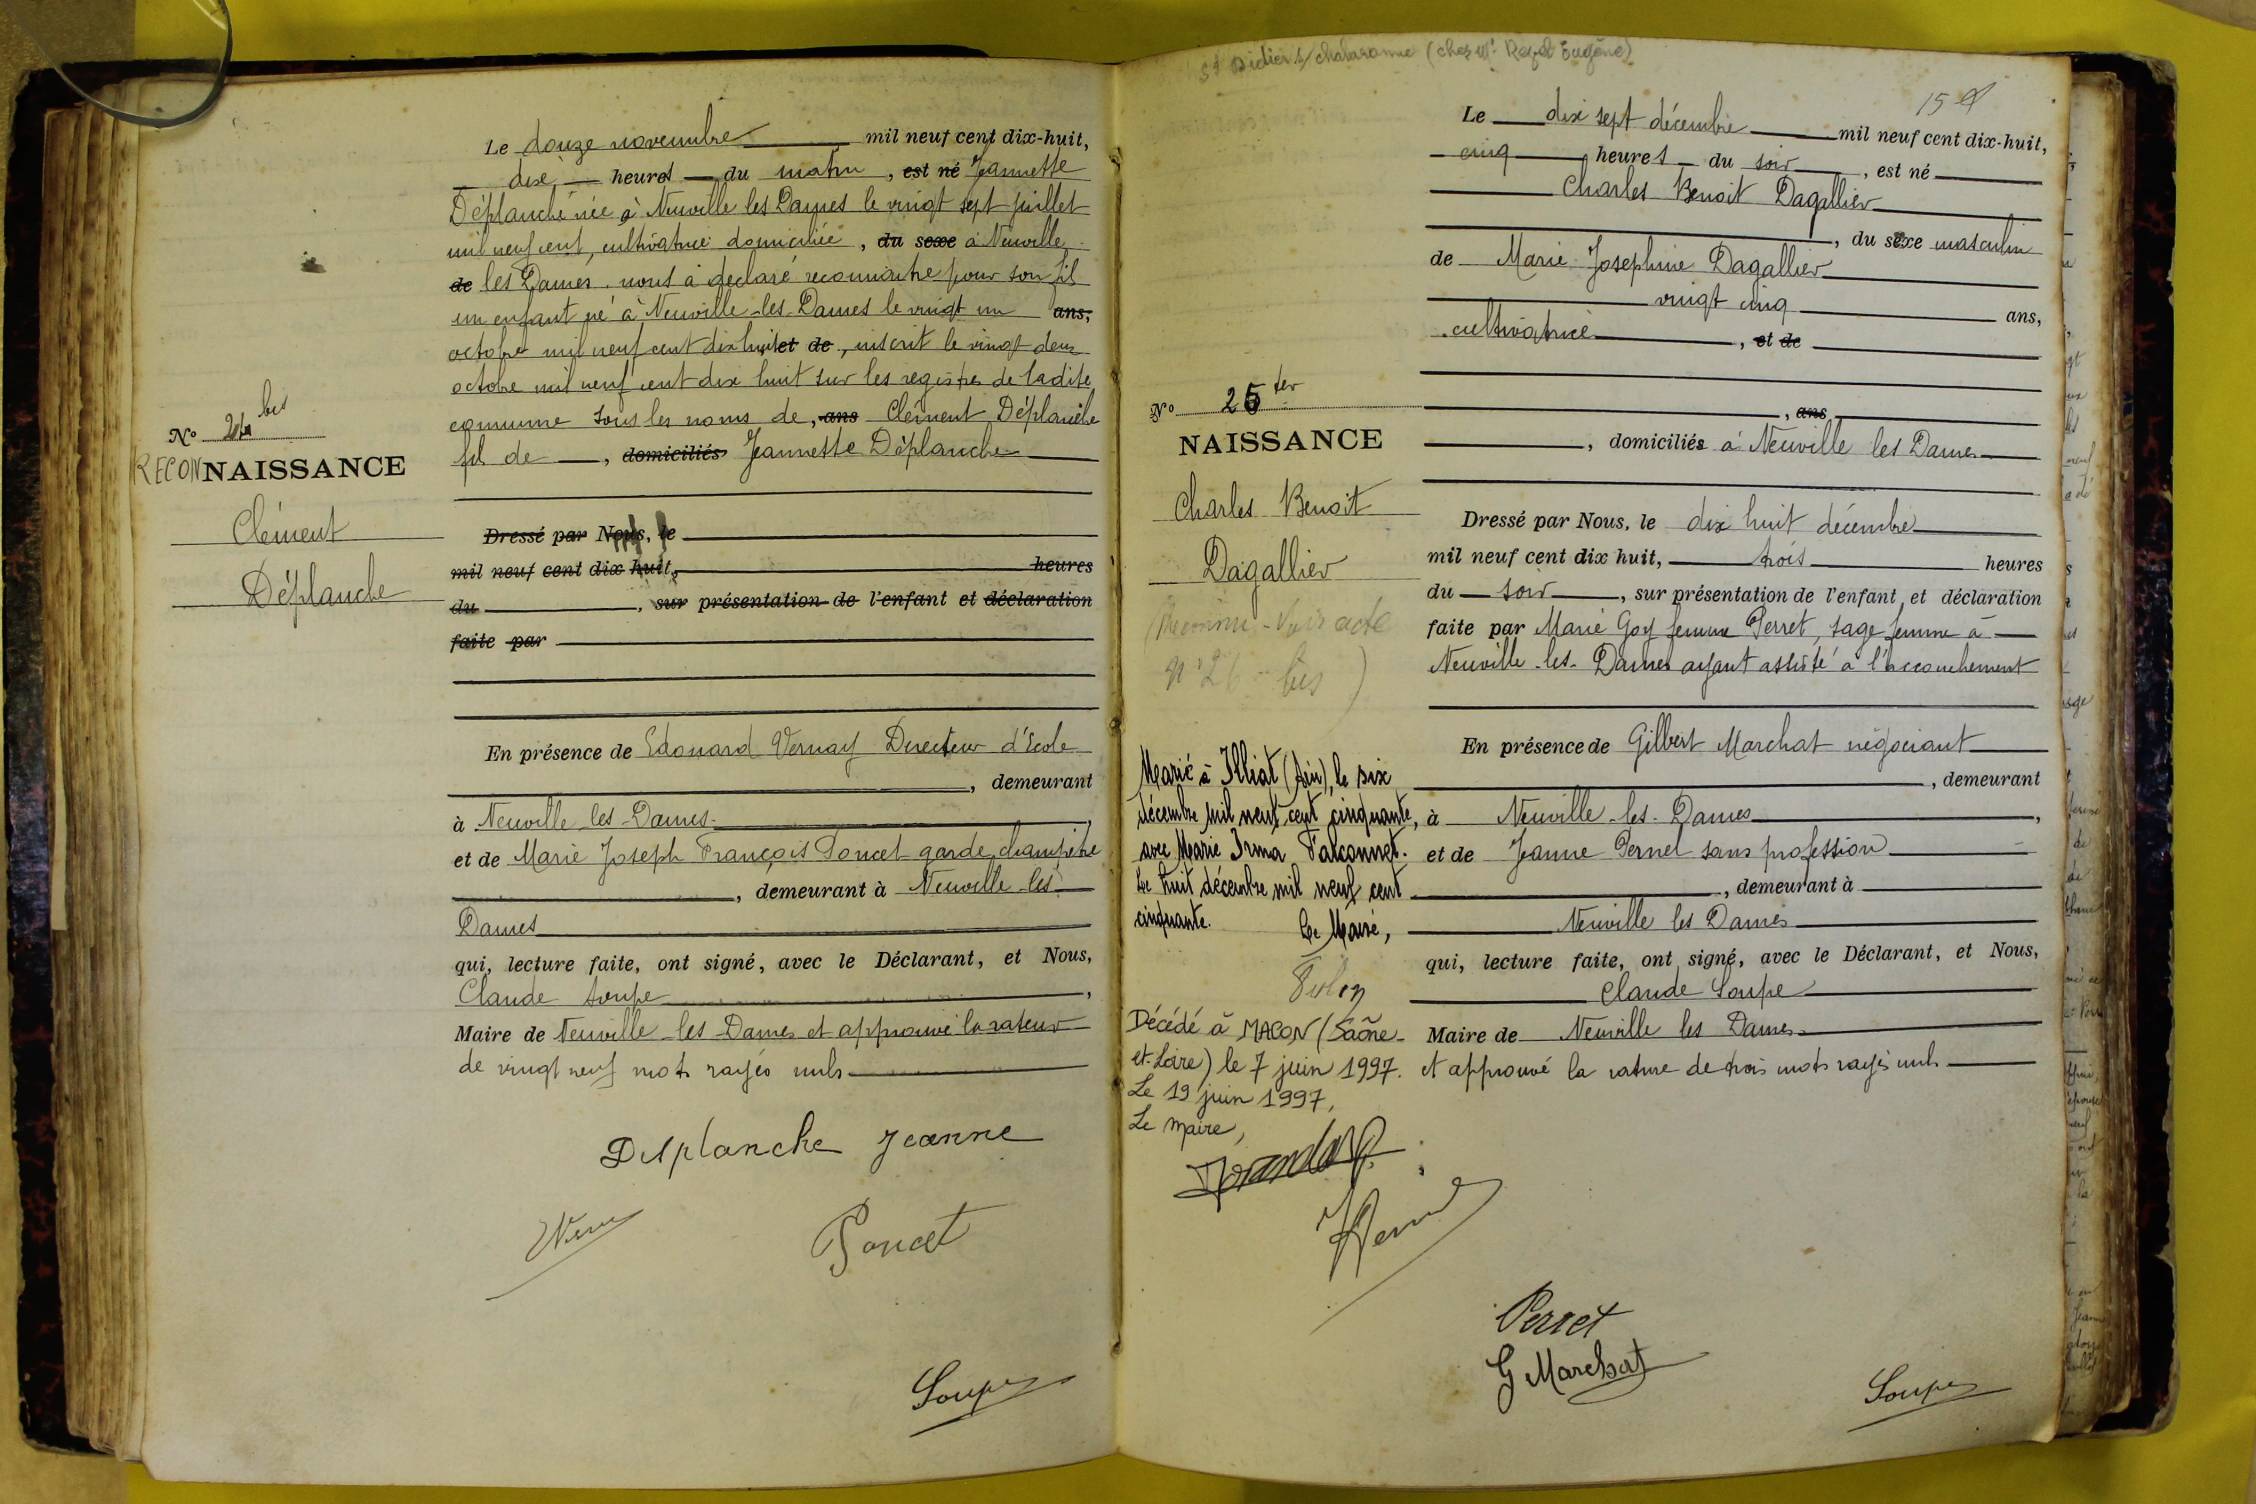 Le douze novembre mil neuf cent dix-huit,
dix heures du matin, est né Jeannette
Déplanche née à Neuville les Dames le vingt sept juillet
mil neuf cent, cultivatrice domiciliée, du sexe à Neuville
de les Dames. nous a déclaré reconnaitre pour son fil
un enfant né à Neuville-les-Dames le vingt un ans,
octobre mil neuf cent dix huit et de, inscrit le vingt deux
octobre mil neuf cent dix huit sur les registres de ladite
commune sous les noms de, ans Clément Déplanche
fil de, domiciliés Jeannette Déplanche
bis
No
RECONNAISSANCE
Clément
Déplanche
Dressé par Nous, le
mil neuf cent dix huit, heures
du, sur présentation de l'enfant et déclaration
faite par
En présence de Edouard Vernay Directeur d'Ecole
, demeurant
à Neuville les Dames,
et de Marie Joseph François Poncet garde champêtre
, demeurant à Neuville les
Dames
qui, lecture faite, ont signé, avec le Déclarant, et Nous,
Claude Soupe,
Maire de Neuville les Dames et approuvé la rature
de vingt neuf mots rayés nuls
Desplanche Jeanne
Poncet
Soupe
St Didier s/ Chalaronne (chez Mr Eugène)
15
Le dix sept décembre mil neuf cent dix-huit,
cinq heures du soir, est né
Charles Benoit Dagallier
, du sexe masculin
de Marie Josephine Dagallier
vingt cinq ans,
cultivatrice, et de
, ans
, domiciliés à Neuville les Dames
No 25 ter
NAISSANCE
Charles Benoit
Dagallier
(Reconnu - Voir acte
n° 26 - bis)
Dressé par Nous, le dix huit décembre
mil neuf cent dix huit, trois heures
du soir, sur présentation de l'enfant et déclaration
faite par Marie Goy femme Perret, sage femme à
Neuville-les-Dames ayant assisté à l'accouchement
En présence de Gilbert Marchat négociant
, demeurant
à Neuville-les-Dames,
et de Jeanne Pernet sans profession
, demeurant à
Neuville les Dames
qui, lecture faite, ont signé, avec le Déclarant, et Nous,
Claude Soupe
Maire de Neuville les Dames
et approuvé la rature de trois mots rayés nuls
Marié à Illiat (Ain), le six
décembre mil neuf cent cinquante,
avec Marie Irma Falconnet.
Le huit décembre mil neuf cent
cinquante. Le Maire,
Décédé à MACON (Saône-
et-Loire) le 7 juin 1997.
Le 19 juin 1997,
Le maire,
Perret
G Marchat
Soupe